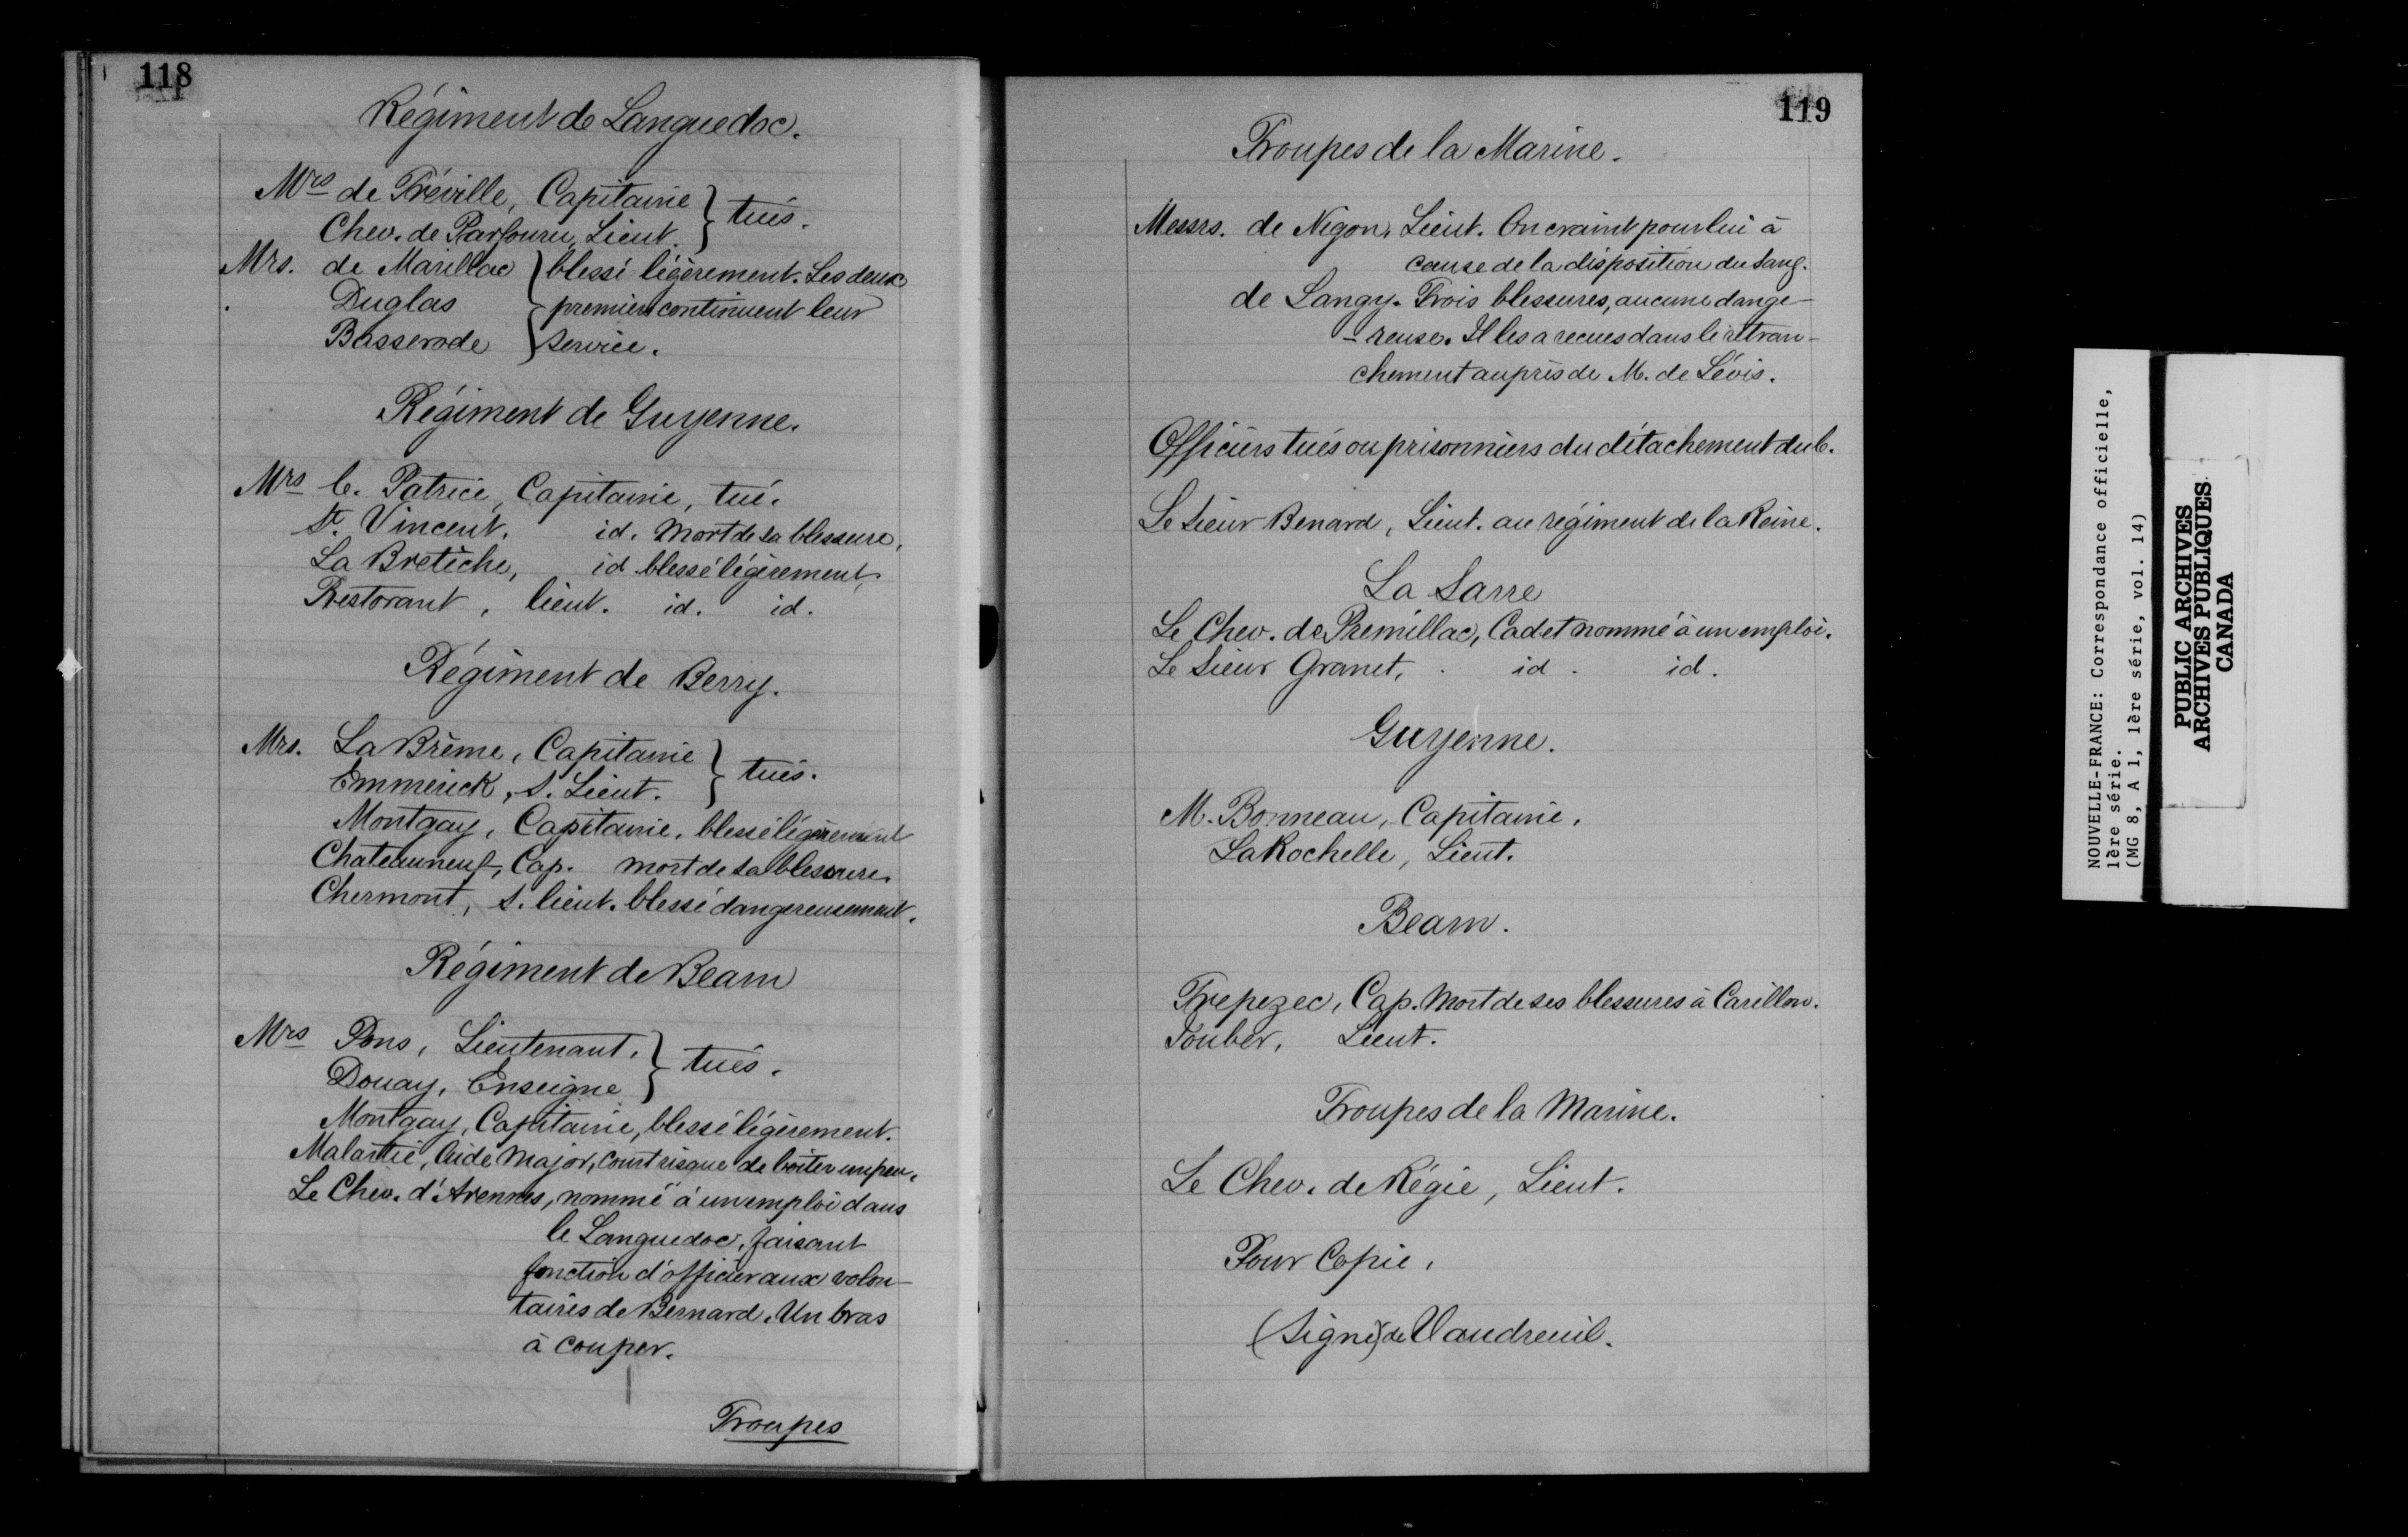 118
Régiment de Languedoc.
Mrs de Fréville, Capitaine } tués.
Chev. de Parfouru, Lieut.
Mrs. de Marillac } blessé légèrement. Les deux
Duglas premiers continuent leur
Basserode service.
Régiment de Guyenne.
Mrs C. Patrice, Capitaine, tué.
St. Vincent. id. Mort de sa blessure.
La Bretêche, id blessé légèrement.
Restorant, lieut. id. id.
Régiment de Berry.
Mrs. La Brème, Capitaine } tués.
Emmerick, S. Lieut.
Montgay, Capitaine, blessé légèrement
Chateauneuf, Cap. mort de sa blessure.
Chermont, S. lieut. blessé dangereusement.
Régiment de Bearn
Mrs Pons, Lieutenant. } tués.
Douay, Enseigne
Montgay, Capitaine, blessé légèrement.
Malartie, Aide Major, court risque de boiter un peu.
Le Chev. d'Arennes, nommé à un emploi dans
le Languedoc, faisant
fonction d'officier aux volon-
taires de Bernard. Un bras
à couper.
Troupes
119
Troupes de la Marine.
Messrs. de Nigon, Lieut. On craint pour lui à
cause de la disposition du sang.
de Langy. Trois blessures, aucune dange-
-reuse. Il les a recues dans le retran-
chement auprès de M. de Lévis.
Officiers tués ou prisonniers du détachement du 6.
Le Sieur Benard, Lieut. au régiment de la Reine.
La Sarre
Le Chev. de Premillac, Cadet nommé à un emploi.
Le Sieur Granet, id. id.
Guyenne.
M. Bonneau, Capitaine.
LaRochelle, Lieut.
Bearn.
Trepezec, Cap. Mort de ses blessures à Carillon.
Jouber, Lieut.
Troupes de la Marine.
Le Chev. de Régie, Lieut.
Pour Copie,
(Signé) de Vaudreuil.
NOUVELLE-FRANCE: Correspondance officielle,
1ère série.
(MG 8, A 1, 1ère série, vol. 14)
PUBLIC ARCHIVES
ARCHIVES PUBLIQUES
CANADA